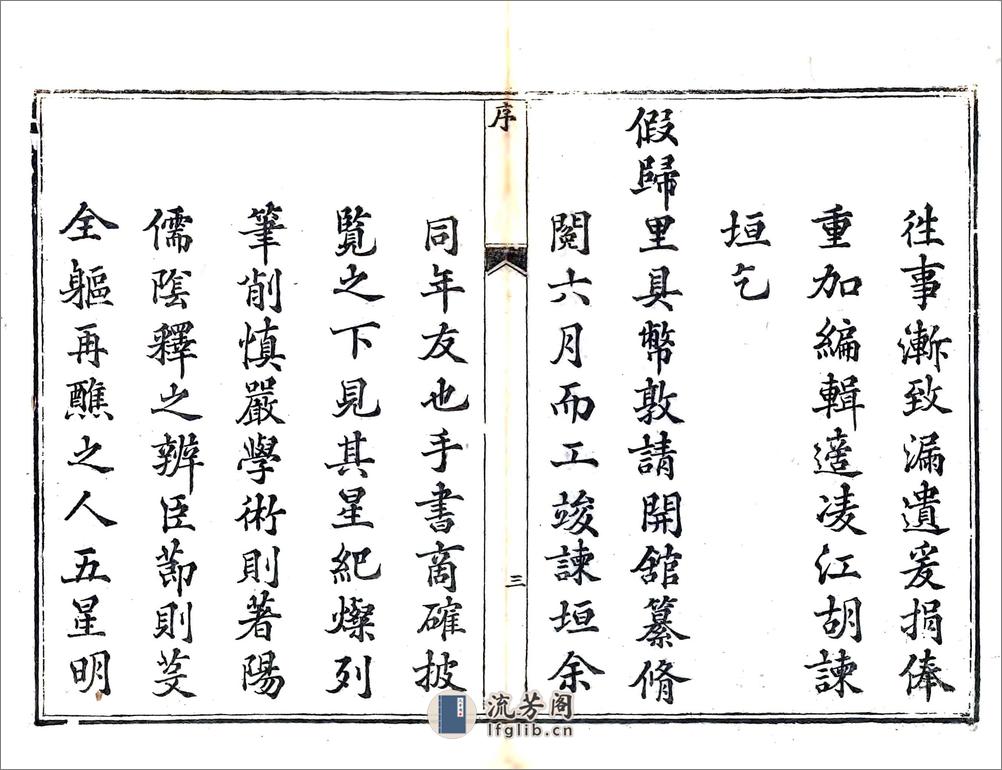 徃事漸致漏遺爰捐俸
重加編輯適凌江胡諫
垣乞
假歸里具幣敦請開舘纂脩
閱六月而工竣諫垣余
序
三
同年友也手書商確披
覧之下見其星紀燦列
筆削慎嚴學術則著陽
儒陰釋之辨臣節則芟
全軀再醮之人五星明
流芳阁
lfglib.cn